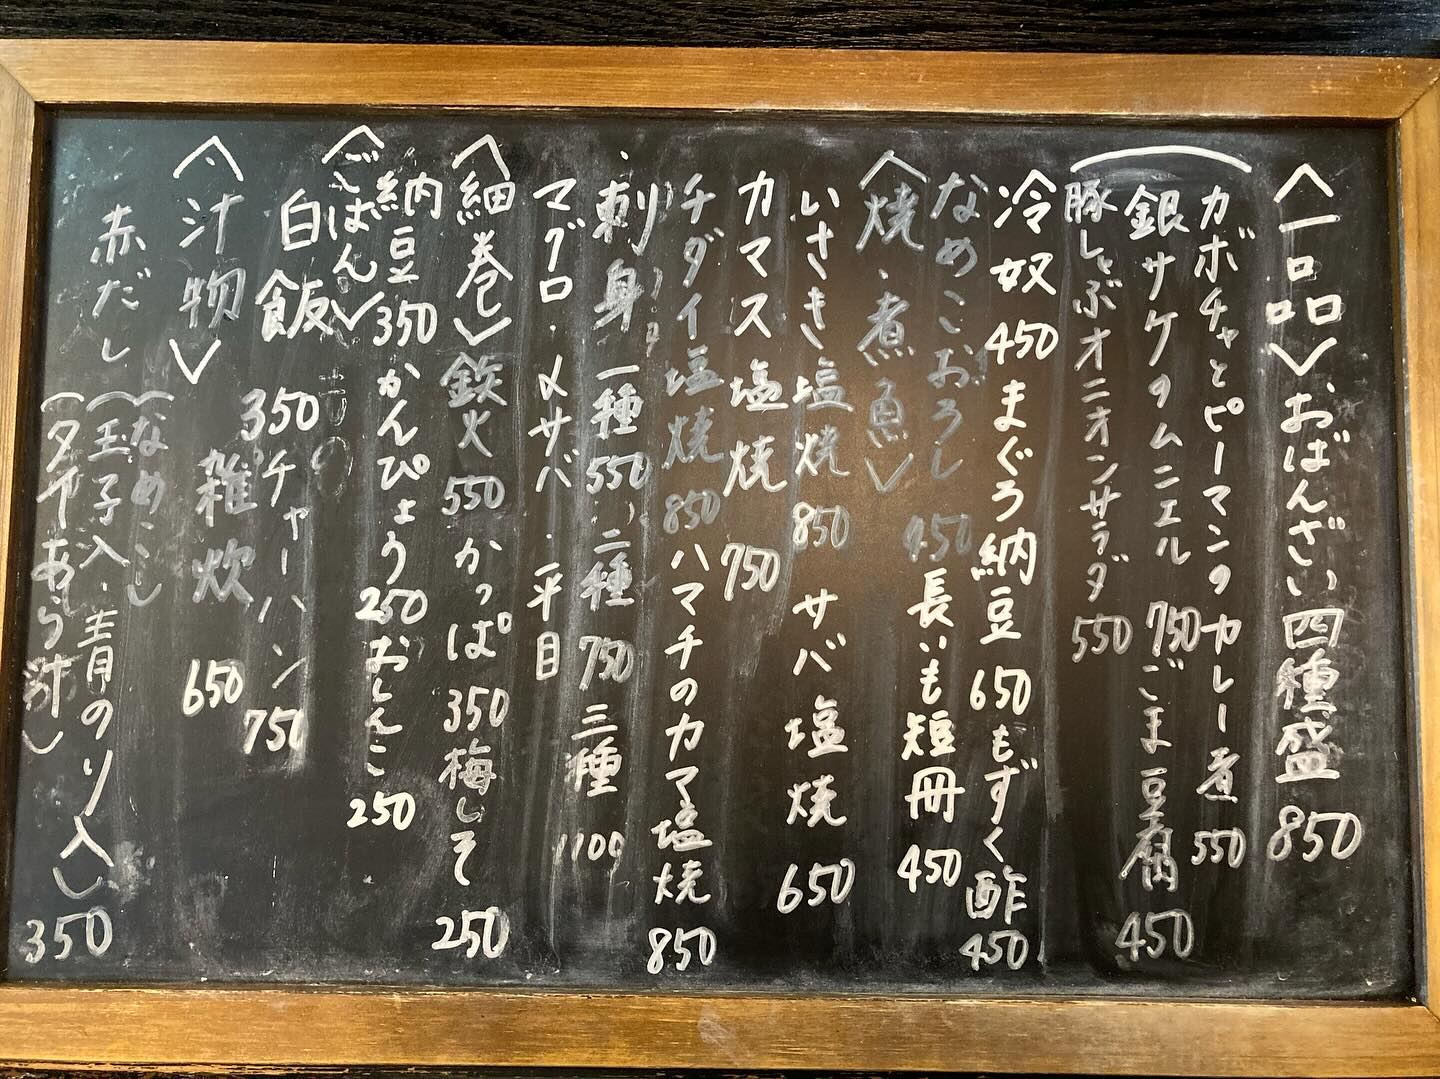 〈一品〉おばんざい四種盛 850
カボチャとピーマンのカレー煮 550
銀サケのムニエル 750 ごま豆腐 450
豚しゃぶオニオンサラダ 550
冷奴 450 まぐろ納豆 650 もずく酢 450
なめこおろし 450 長いも短冊 450
〈焼・煮魚〉
いさき塩焼 850 サバ塩焼 650
カマス塩焼 750
チダイ塩焼 850 ハマチのカマ塩焼 850
刺身 一種 550 二種 750 三種 1100
マグロ・〆サバ・平目
〈細巻〉鉄火 550 かっぱ 350 梅しそ 250
納豆 350 かんぴょう 250 おしんこ 250
〈ごはん〉
白飯 350 チャーハン 750
雑炊 650
〈汁物〉
赤だし(なめこ)
(玉子入・青のり入)
(タイあら汁) 350